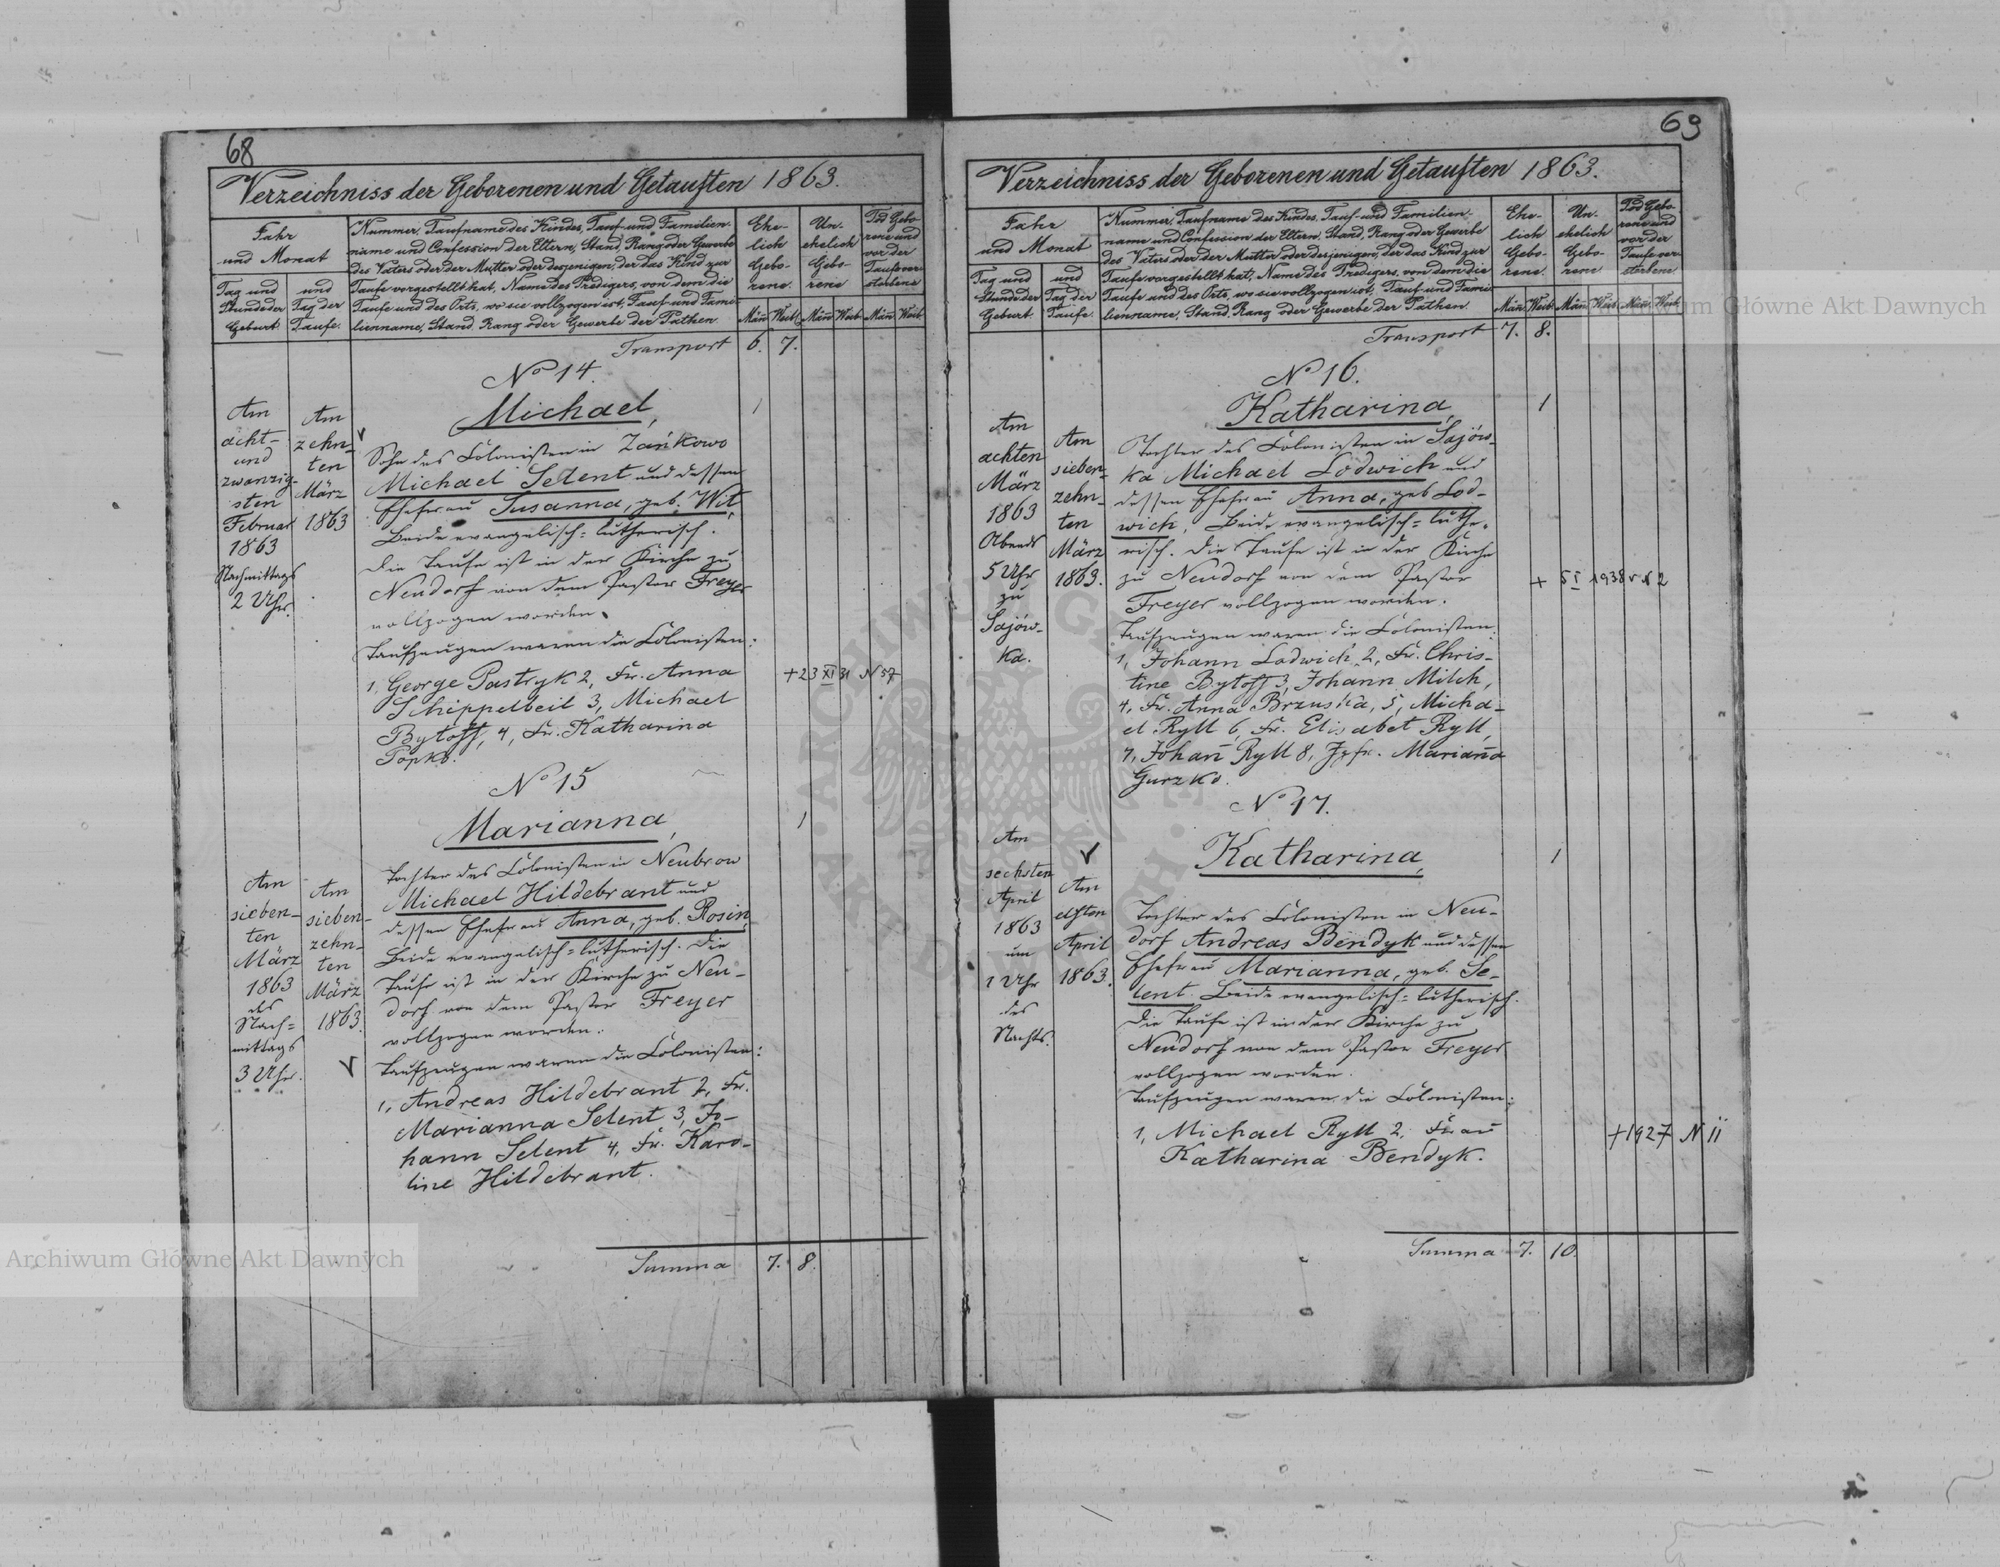 68
Verzeichniss der Geborenen und Getauften 1863.
Jahr
und Monat
Tag und
Stunde der
Geburt.
und
Tag der
Taufe.
Nummer, Taufname des Kindes, Tauf- und Familien-
name und Confession der Eltern, Stand, Rang oder Gewerbe
des Vaters oder der Mutter oder desjenigen, der das Kind zur
Taufe vorgestellt hat, Name des Predigers, von dem die
Taufe und des Orts, wo sie vollzogen ist, Tauf- und Fami-
lienname, Stand, Rang oder Gewerbe der Pathen.
Ehe-
lich
Gebo-
rene.
Un-
ehelich
Gebo-
rene
Tod Gebo-
rene und
vor der
Taufe ver-
storbene
Män Weib. Män Weib. Män Weib.
Transport 6. 7.
No 14.
Michael, 1
Am
acht-
und
zwanzig-
sten
Februar
1863
Nachmittags
2 Uhr.
Am
zehn-
ten
März
1863
Sohn des Colonisten in Zańkowo
Michael Selent und dessen
Ehefrau Susanna, geb. Wit,
Beide evangelisch-lutherisch.
Die Taufe ist in der Kirche zu
Neudorf von dem Pastor Freyer
vollzogen worden.
Taufzeugen waren die Colonisten:
1, George Pastryk 2, Fr. Anna
Schippelbeil 3, Michael
Bytoff, 4, Fr. Katharina
Popko.
+ 23 XI 31 N 57
No 15
Marianna, 1
Am
sieben-
ten
März
1863
des
Nach-
mittags
3 Uhr.
Am
sieben-
zehn-
ten
März
1863.
Tochter des Colonisten in Neubrow
Michael Hildebrant und
dessen Ehefrau Anna, geb. Rosin,
Beide evangelisch-lutherisch. Die
Taufe ist in der Kirche zu Neu-
dorf von dem Pastor Freyer
vollzogen worden.
Taufzeugen waren die Colonisten:
1, Andreas Hildebrant 2, Fr.
Marianna Selent 3, Jo-
hann Selent 4, Fr. Karo-
line Hildebrant.
Summa 7. 8.
69
Verzeichniss der Geborenen und Getauften 1863.
Jahr
und Monat
Tag und
Stunde der
Geburt.
und
Tag der
Taufe.
Nummer, Taufname des Kindes, Tauf- und Familien-
name und Confession der Eltern, Stand, Rang oder Gewerbe
des Vaters oder der Mutter oder desjenigen, der das Kind zur
Taufe vorgestellt hat, Name des Predigers, von dem die
Taufe und des Orts, wo sie vollzogen ist, Tauf- und Fami-
lienname, Stand, Rang oder Gewerbe der Pathen.
Ehe-
lich
Gebo-
rene.
Un-
ehelich
Gebo-
rene
Tod Gebo-
rene und
vor der
Taufe ver-
storbene.
Män Weib. Män Weib. Män Weib.
Transport 7. 8.
No 16.
Katharina, 1
Am
achten
März
1863
Abends
5 Uhr
zu
Sajów-
ka.
Am
sieben-
zehn-
ten
März
1863.
Tochter des Colonisten in Sajów-
ka Michael Lodwich und
dessen Ehefrau Anna, geb. Lod-
wich, Beide evangelisch-luthe-
risch. Die Taufe ist in der Kirche
zu Neudorf von dem Pastor
Freyer vollzogen worden.
Taufzeugen waren die Colonisten:
1, Johann Lodwich 2, Fr. Chris-
tine Bytoff 3, Johann Milch,
4, Fr. Anna Brzuska, 5, Micha-
el Ryll 6, Fr. Elisabet Ryll,
7, Johan̄ Ryll 8, Jgfr. Marian̄a
Gurzko.
+ 5 I 1938 r N 2
No 17.
Katharina, 1
Am
sechsten
April
1863
um
1 Uhr
des
Nachts.
Am
elften
April
1863.
Tochter des Colonisten in Neu-
dorf Andreas Bendyk und dessen
Ehefrau Marianna, geb. Se-
lent. Beide evangelisch-lutherisch.
Die Taufe ist in der Kirche zu
Neudorf von dem Pastor Freyer
vollzogen worden.
Taufzeugen waren die Colonisten:
1, Michael Ryll 2, Frau
Katharina Bendyk.
+ 1927 N 11
Summa 7. 10.
Archiwum Główne Akt Dawnych
Archiwum Główne Akt Dawnych